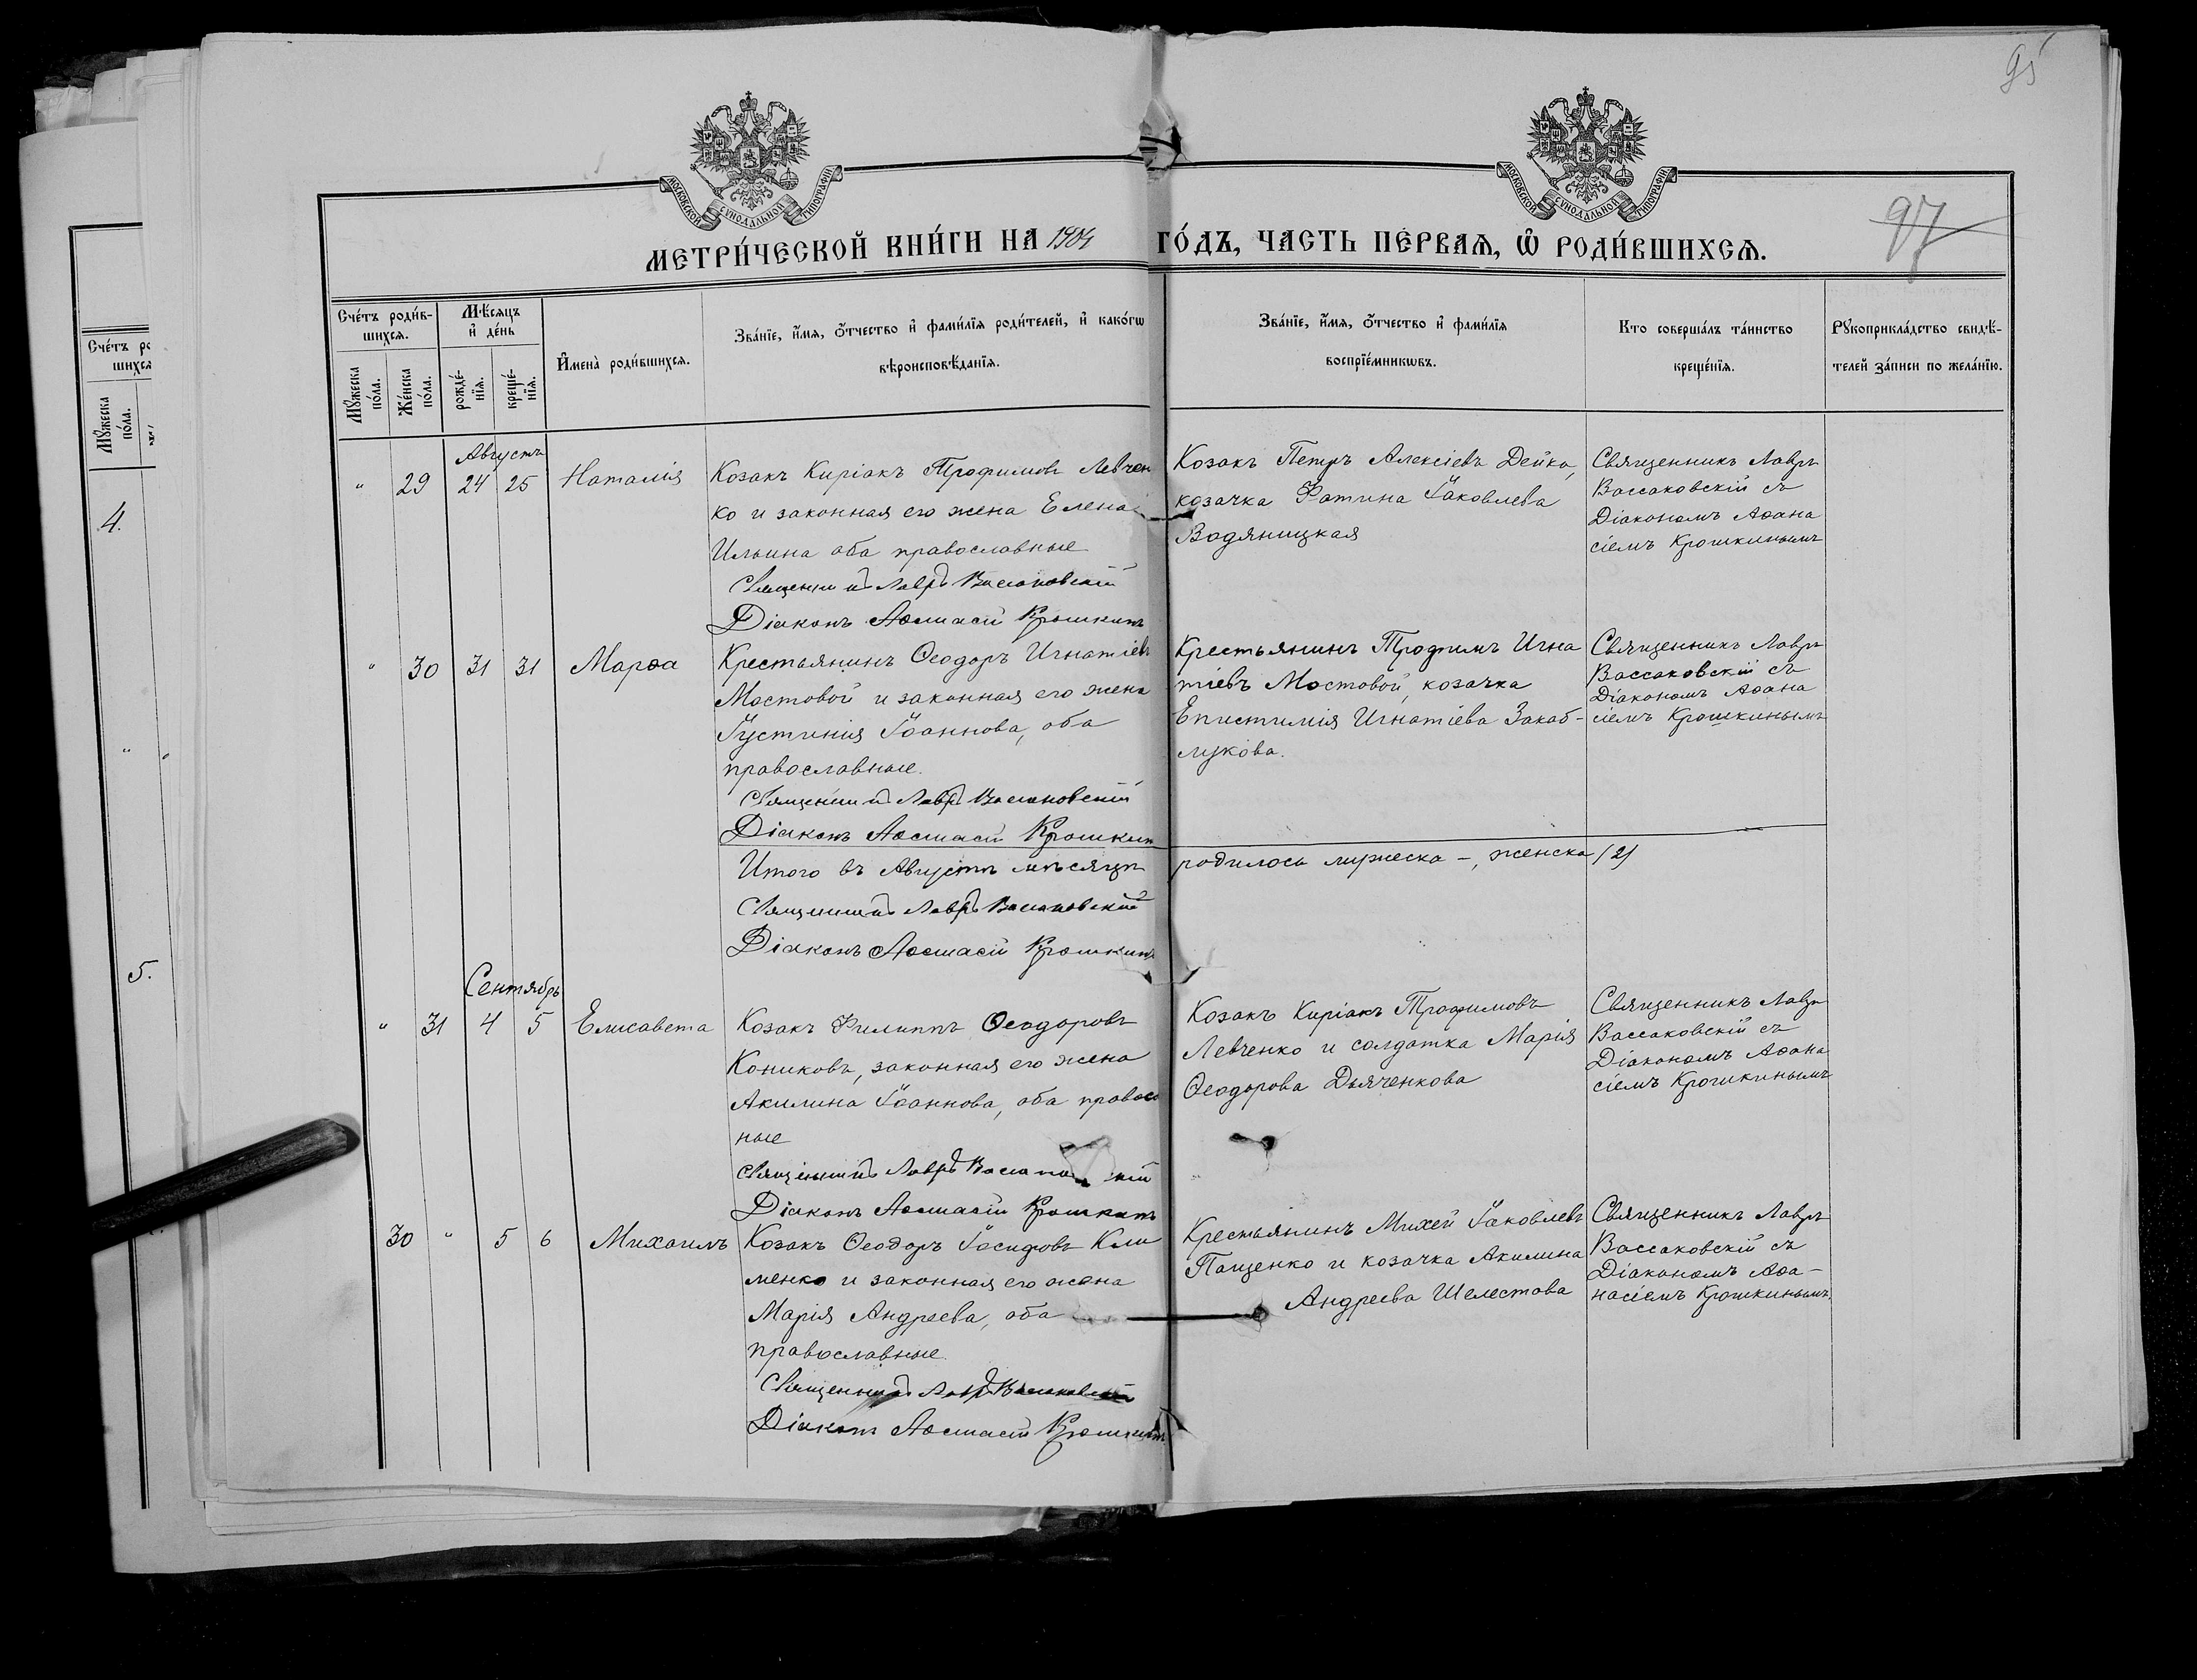 95
97
МОСКОВСКОЙ СѴНОДАЛЬНОЙ ТИПОГРАФІИ
МОСКОВСКОЙ СѴНОДАЛЬНОЙ ТИПОГРАФІИ
МЕТРИ́ЧЕСКОЙ КНИ́ГИ НА 1904 ГО́ДЪ, ЧАСТЬ ПЕ́РВАѦ, Ѡ҆ РОДИ́ВШИХСѦ.
Сче́тъ роди́в-
шихсѧ.
Мꙋ́жеска по́ла.
Же́нска по́ла.
Мѣ́сѧцъ
и҆ де́нь
рожде́-нїѧ.
креще́-нїѧ.
И҆мена̀ роди́вшихсѧ.
Зва́нїе, и҆́мѧ, ѻ҆́тчество и҆ фами́лїѧ роди́телей, и҆ како́гѡ
вѣроисповѣ́данїѧ.
Зва́нїе, и҆́мѧ, ѻ҆́тчество и҆ фами́лїѧ
воспрїе́мникѡвъ.
Кто соверша́лъ та́инство
креще́нїѧ.
Рꙋкоприкла́дство свидѣ́-
телей за́писи по жела́нїю.
Августъ
" 29 24 25 Наталія
Козакъ Киріакъ Трофимовъ Левчен
ко и законная его жена Елена
Ильина оба православные
Священникъ Лавръ Вассаковскій
Діаконъ Аѳанасій Крошкинъ
Козакъ Петръ Алексіевъ Дейка,
козачка Фатина Іаковлева
Водяницкая
Священникъ Лавръ
Вассаковскій съ
Діакономъ Аѳана
сіемъ Крошкинымъ
" 30 31 31 Марѳа
Крестьянинъ Ѳеодоръ Игнатіевъ
Мостовой и законная его жена
Іустинія Іоаннова, оба
православные.
Священникъ Лавръ Вассаковскій
Діаконъ Аѳанасій Крошкинъ
Крестьянинъ Трофимъ Игна
тіевъ Мостовой, козачка
Епистимія Игнатіева Закаб-
лукова.
Священникъ Лавръ
Вассаковскій съ
Діакономъ Аѳана
сіемъ Крошкинымъ
Итого въ Августѣ мѣсяцѣ родилось мужеска –, женска /2/
Священникъ Лавръ Вассаковскій
Діаконъ Аѳанасій Крошкинъ
Сентябрь
" 31 4 5 Елисавета
Козакъ Филиппъ Ѳеодоровъ
Кониковъ, законная его жена
Акилина Іоаннова, оба правосл
ные
Священникъ Лавръ
Діаконъ Аѳанасій Крошкинъ
Козакъ Киріакъ Трофимовъ
Левченко и солдатка Марія
Ѳеодорова Дьяченкова
Священникъ Лавръ
Вассаковскій съ
Діакономъ Аѳана
сіемъ Крошкинымъ
30 " 5 6 Михаилъ
Козакъ Ѳеодоръ Іосифовъ Кли
менко и законная его жена
Марія Андреева, оба
православные.
Священникъ Лавръ Вассаковскій
Діаконъ Аѳанасій Крошкинъ
Крестьянинъ Михей Іаковлевъ
Пащенко и козачка Акилина
Андреева Шелестова
Священникъ Лавръ
Вассаковскій съ
Діакономъ Аѳа-
насіемъ Крошкинымъ.
Мꙋ́жеска по́ла.
4.
5.